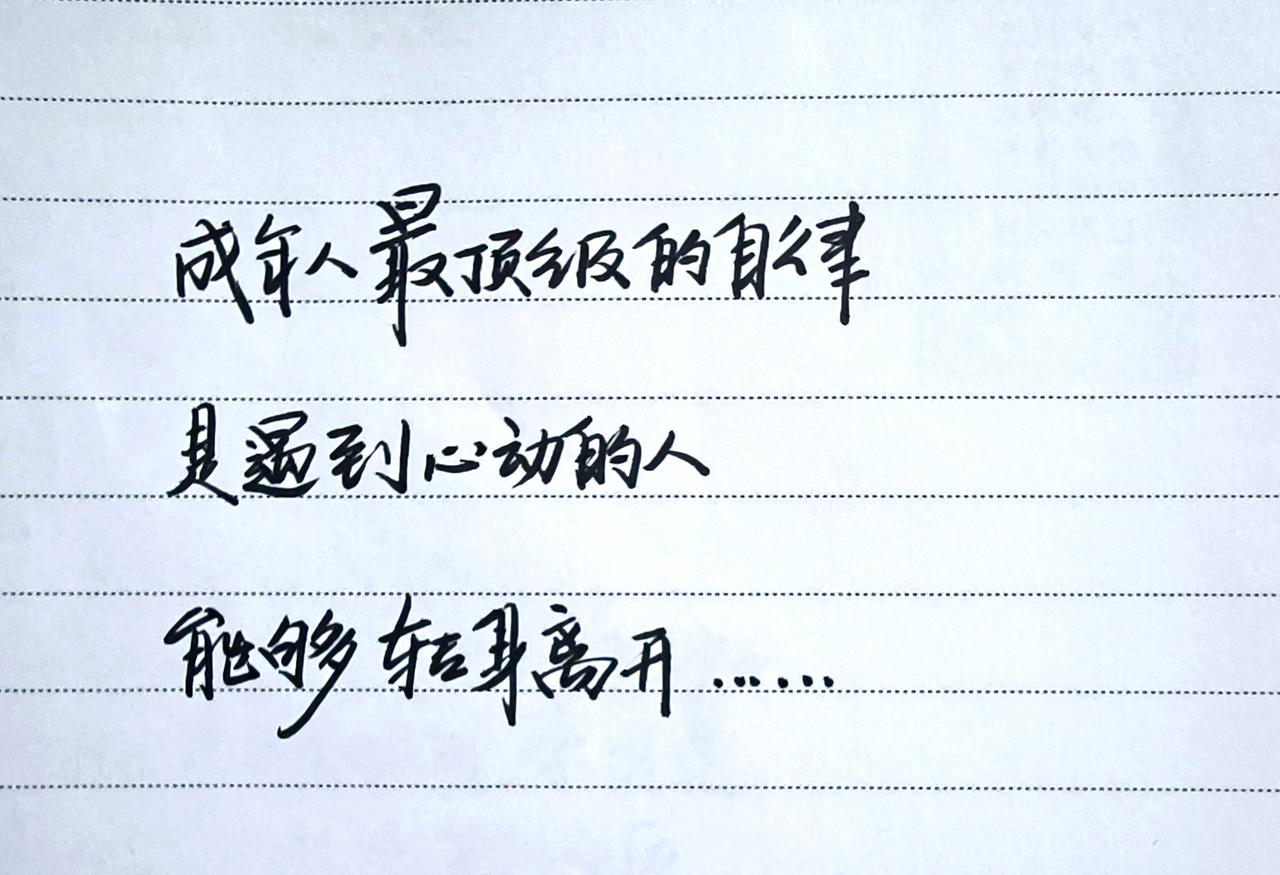 成年人最顶级的自律
是遇到心动的人
能够转身离开……